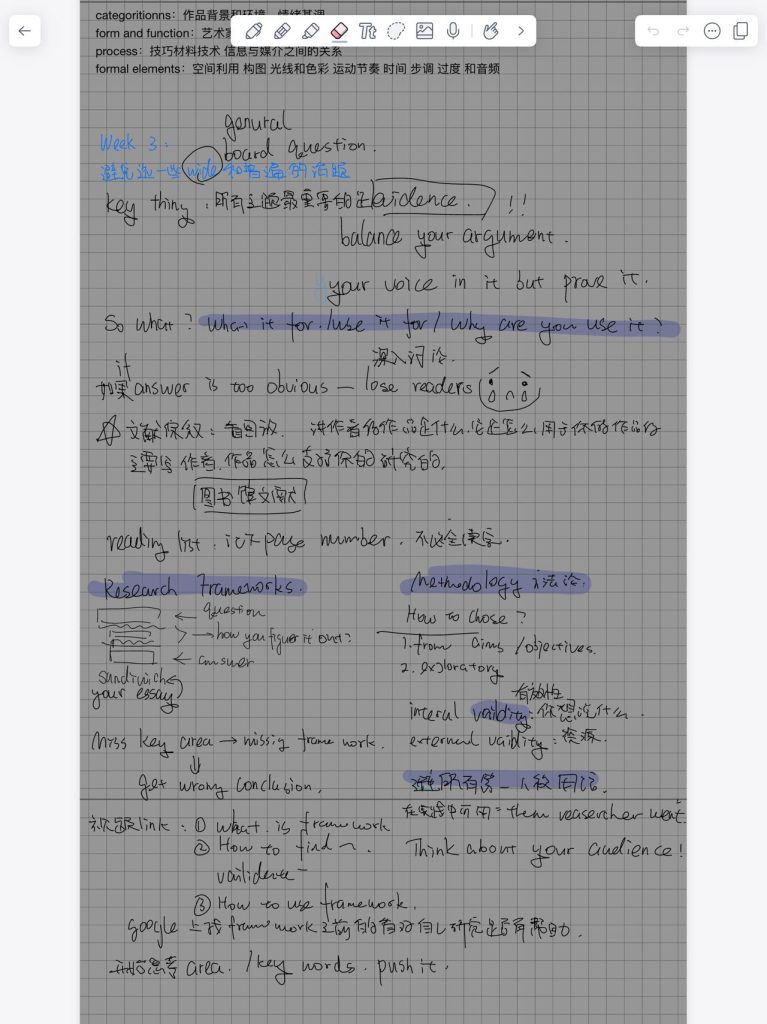 categoritionns：作品背景和环境 情绪基调
form and function：艺术家
process：技巧材料技术 信息与媒介之间的关系
formal elements：空间利用 构图 光线和色彩 运动节奏 时间 步调 过度 和音频
genural
Week 3:
board question.
避免选一些wide和普遍的话题
key thing：所有主题最重要的是evidence. !!
balance your argument.
your voice in it but prove it.
So what? what it for./use it for/ why are you use it?
深入讨论.
if
如果 answer is too obvious — lose readers
文献综叙：看图放. 讲作者的作品是什么.它是怎么用于你的作品的
主要写作者.作品怎么支持你的研究的.
图书馆文献
reading list：记下page number.
Research Frameworks.
question
how you figure it out?
answer
sandwich
your essay
miss key area → missig frame work.
get wrong conclusion.
methodology 方法论.
How to chose?
1. from aims /objectives.
2. exploratory
有效性
interal vaildity：你想说什么.
external vaildity：资源.
避免所有第一人称用法.
在实验中可用 = them reasercher went
Think about your audience!
视频link：① what is framework
② How to find ~.
vaildence
③ How to use framework.
google 上找framework 之前的看对自己研究是否有帮助.
开始思考 area. /key words. push it.